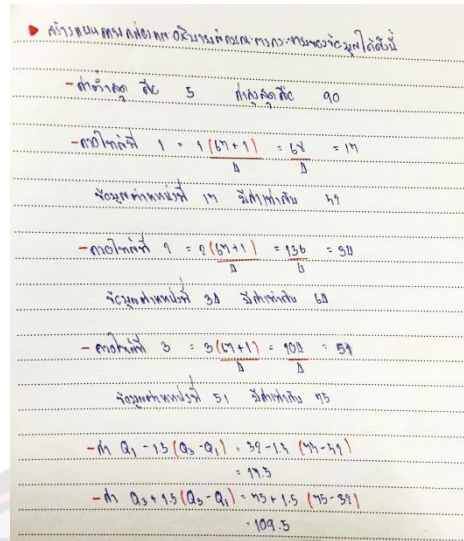 สร้างแผนภาพกล่องและอธิบายลักษณะการกระจายของข้อมูลได้ดังนี้
- ค่าต่ำสุด คือ 5 ค่าสูงสุด คือ 90
- ควอไทล์ที่ 1 = 1(67+1) = 68 = 17
4 4
ข้อมูลตำแหน่งที่ 17 มีค่าเท่ากับ 52
- ควอไทล์ที่ 2 = 2(67+1) = 136 = 34
4 4
ข้อมูลตำแหน่งที่ 34 มีค่าเท่ากับ 64
- ควอไทล์ที่ 3 = 3(67+1) = 204 = 51
4 4
ข้อมูลตำแหน่งที่ 51 มีค่าเท่ากับ 75
- ค่า Q₁ - 1.5 (Q₃ - Q₁) = 52 - 1.5 (75 - 52)
= 17.5
- ค่า Q₃ + 1.5 (Q₃ - Q₁) = 75 + 1.5 (75 - 52)
= 109.5